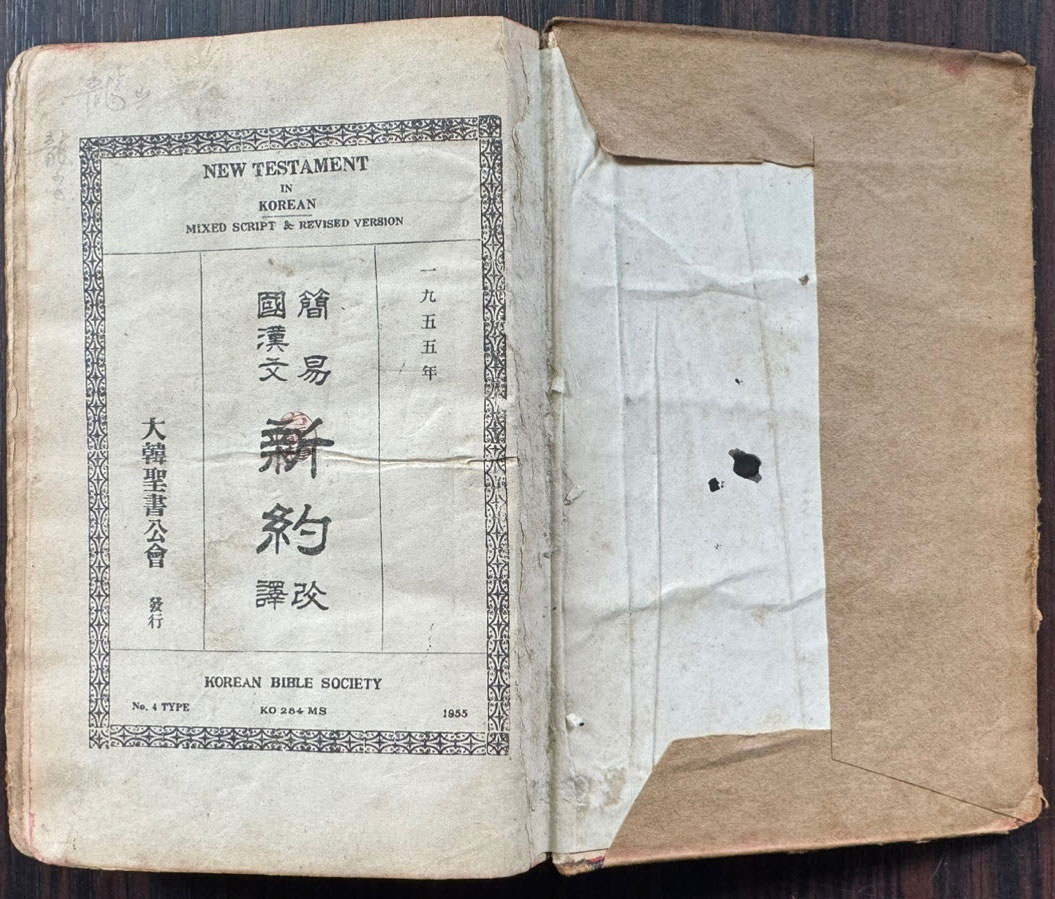 NEW TESTAMENT
IN
KOREAN
MIXED SCRIPT & REVISED VERSION
一九五五年
簡易
國漢文
新約
改譯
大韓聖書公會 發行
KOREAN BIBLE SOCIETY
No. 4 TYPE KO 284 MS 1955